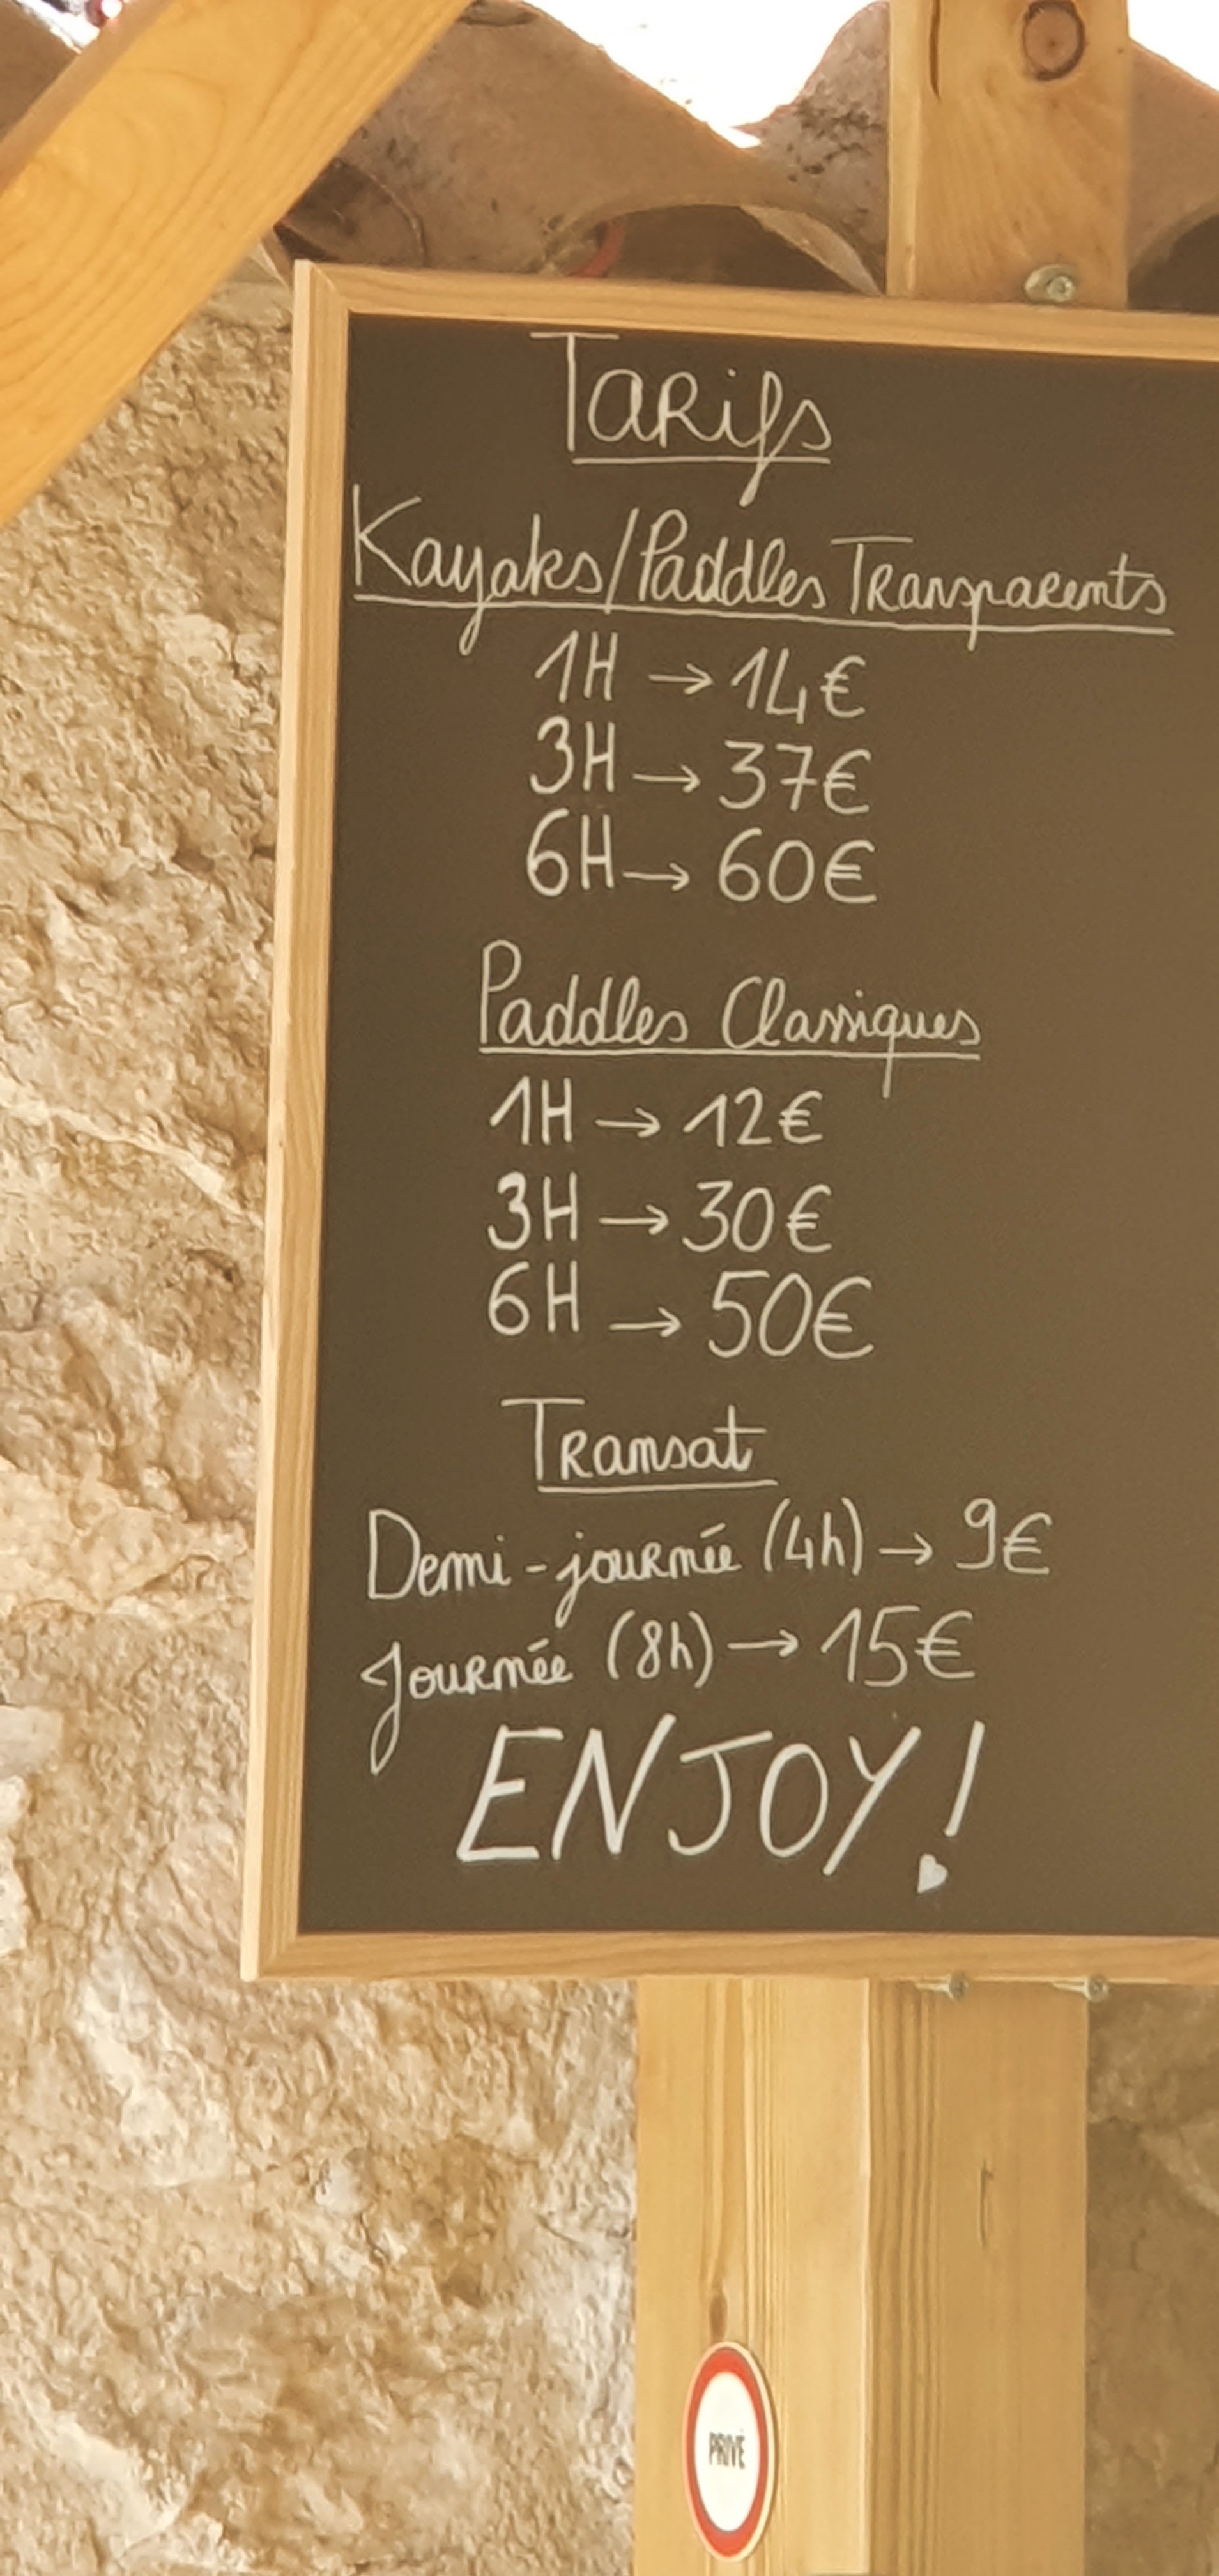 Tarifs
Kayaks/Paddles Transparents
1H → 14€
3H → 37€
6H → 60€
Paddles Classiques
1H → 12€
3H → 30€
6H → 50€
Transat
Demi-journée (4h) → 9€
Journée (8h) → 15€
ENJOY!
PRIVÉ